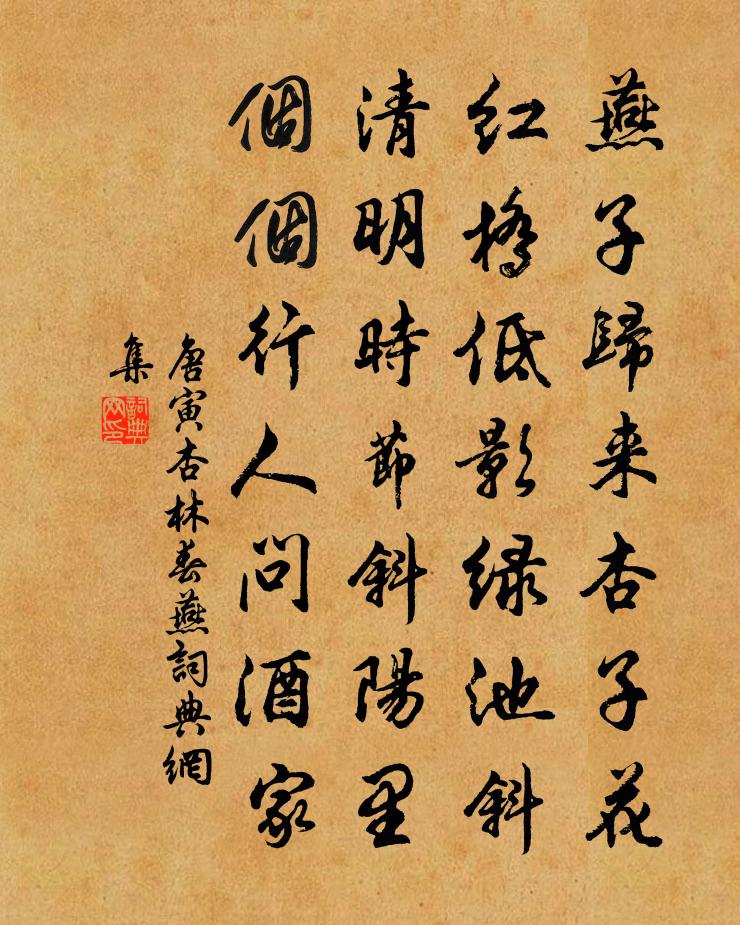 燕子歸来杏子花
紅橋低影緑池斜
清明時節斜陽里
個個行人問酒家
唐寅杏林春燕詞典網
集
詞典
网印